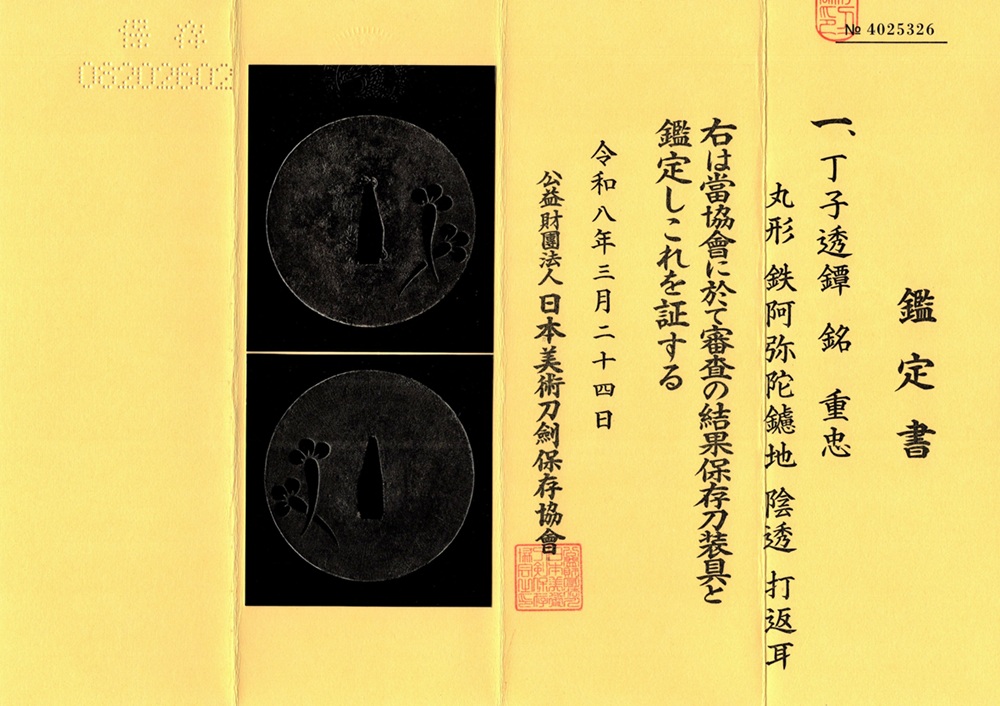 № 4025326
鑑定書
一、丁子透鐔 銘 重忠
丸形 鉄阿弥陀鑢地 陰透 打返耳
右は當協會に於て審査の結果保存刀装具と
鑑定しこれを証する
令和八年三月二十四日
公益財團法人 日本美術刀劍保存協會
保存
08202602